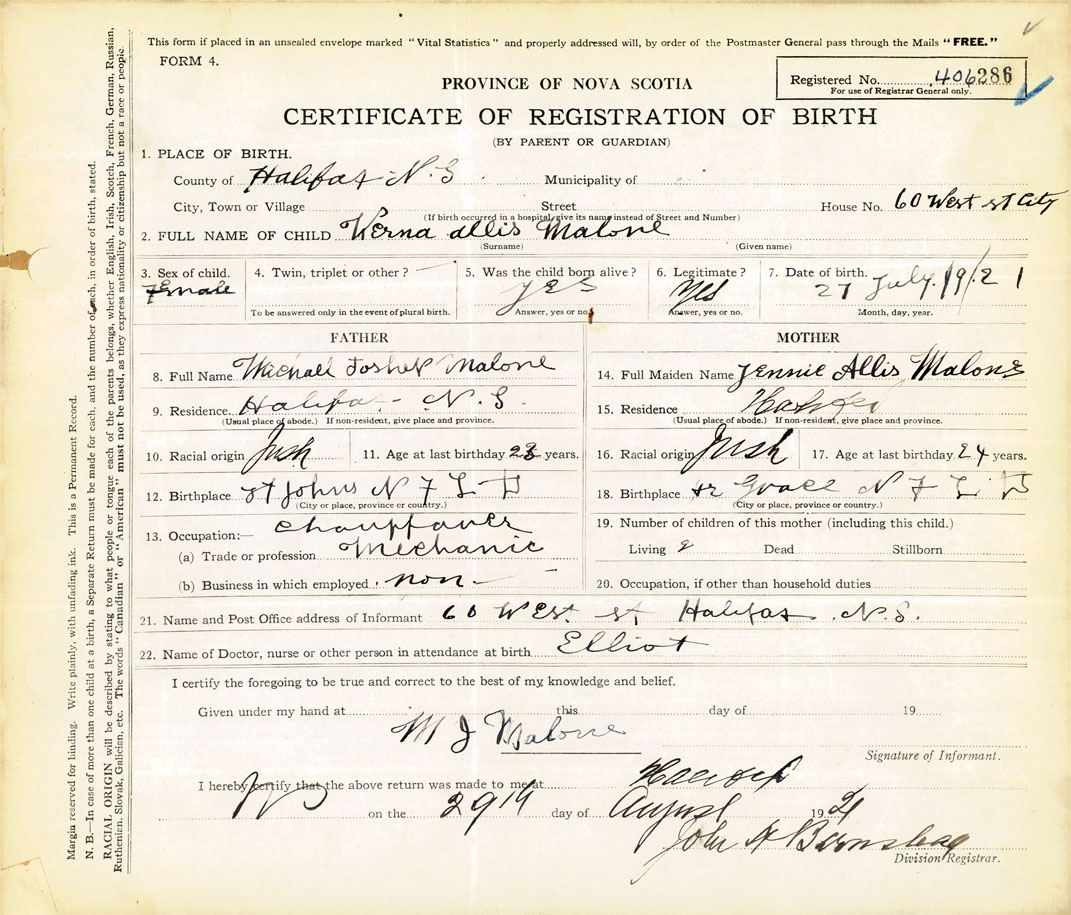 This form if placed in an unsealed envelope marked "Vital Statistics" and properly addressed will, by order of the Postmaster General pass through the Mails "FREE."
FORM 4.
PROVINCE OF NOVA SCOTIA
Registered No. 406286
For use of Registrar General only.
CERTIFICATE OF REGISTRATION OF BIRTH
(BY PARENT OR GUARDIAN)
1. PLACE OF BIRTH.
County of Halifax N. S Municipality of
City, Town or Village Street House No. 60 West st City
(If birth occurred in a hospital, give its name instead of Street and Number)
2. FULL NAME OF CHILD Verna allis Malone
(Surname) (Given name)
3. Sex of child. 4. Twin, triplet or other? 5. Was the child born alive? 6. Legitimate? 7. Date of birth.
Female yES Yes 27 July. 1921
To be answered only in the event of plural birth. Answer, yes or no. Answer, yes or no. Month, day, year.
FATHER
8. Full Name Malone
9. Residence Halifax N. S.
(Usual place of abode.) If non-resident, give place and province.
10. Racial origin Irish 11. Age at last birthday 23 years.
12. Birthplace St Johns N F L D
(City or place, province or country.)
13. Occupation:— chauffauer
(a) Trade or profession Mechanic
(b) Business in which employed. non
MOTHER
14. Full Maiden Name Jennie Allis Malone
15. Residence
(Usual place of abode.) If non-resident, give place and province.
16. Racial origin Irish 17. Age at last birthday 24 years.
18. Birthplace Hr Grace N F L D
(City or place, province or country.)
19. Number of children of this mother (including this child.)
Living 2 Dead Stillborn
20. Occupation, if other than household duties
21. Name and Post Office address of Informant 60 West st Halifax N. S.
22. Name of Doctor, nurse or other person in attendance at birth Elliot
I certify the foregoing to be true and correct to the best of my knowledge and belief.
Given under my hand at this day of 19
M J Malone
Signature of Informant.
I hereby certify that the above return was made to me at Halifax
NS on the 29th day of August 1921
John A Barnstead
Division Registrar.
Margin reserved for binding. Write plainly, with unfading ink. This is a Permanent Record.
N. B.—In case of more than one child at a birth, a Separate Return must be made for each, and the number of each, in order of birth, stated.
RACIAL ORIGIN will be described by stating to what people or tongue each of the parents belongs, whether English, Irish, Scotch, French, German, Russian,
Ruthenian, Slovak, Galician, etc. The words "Canadian" or "American" must not be used, as they express nationality or citizenship but not a race or people.